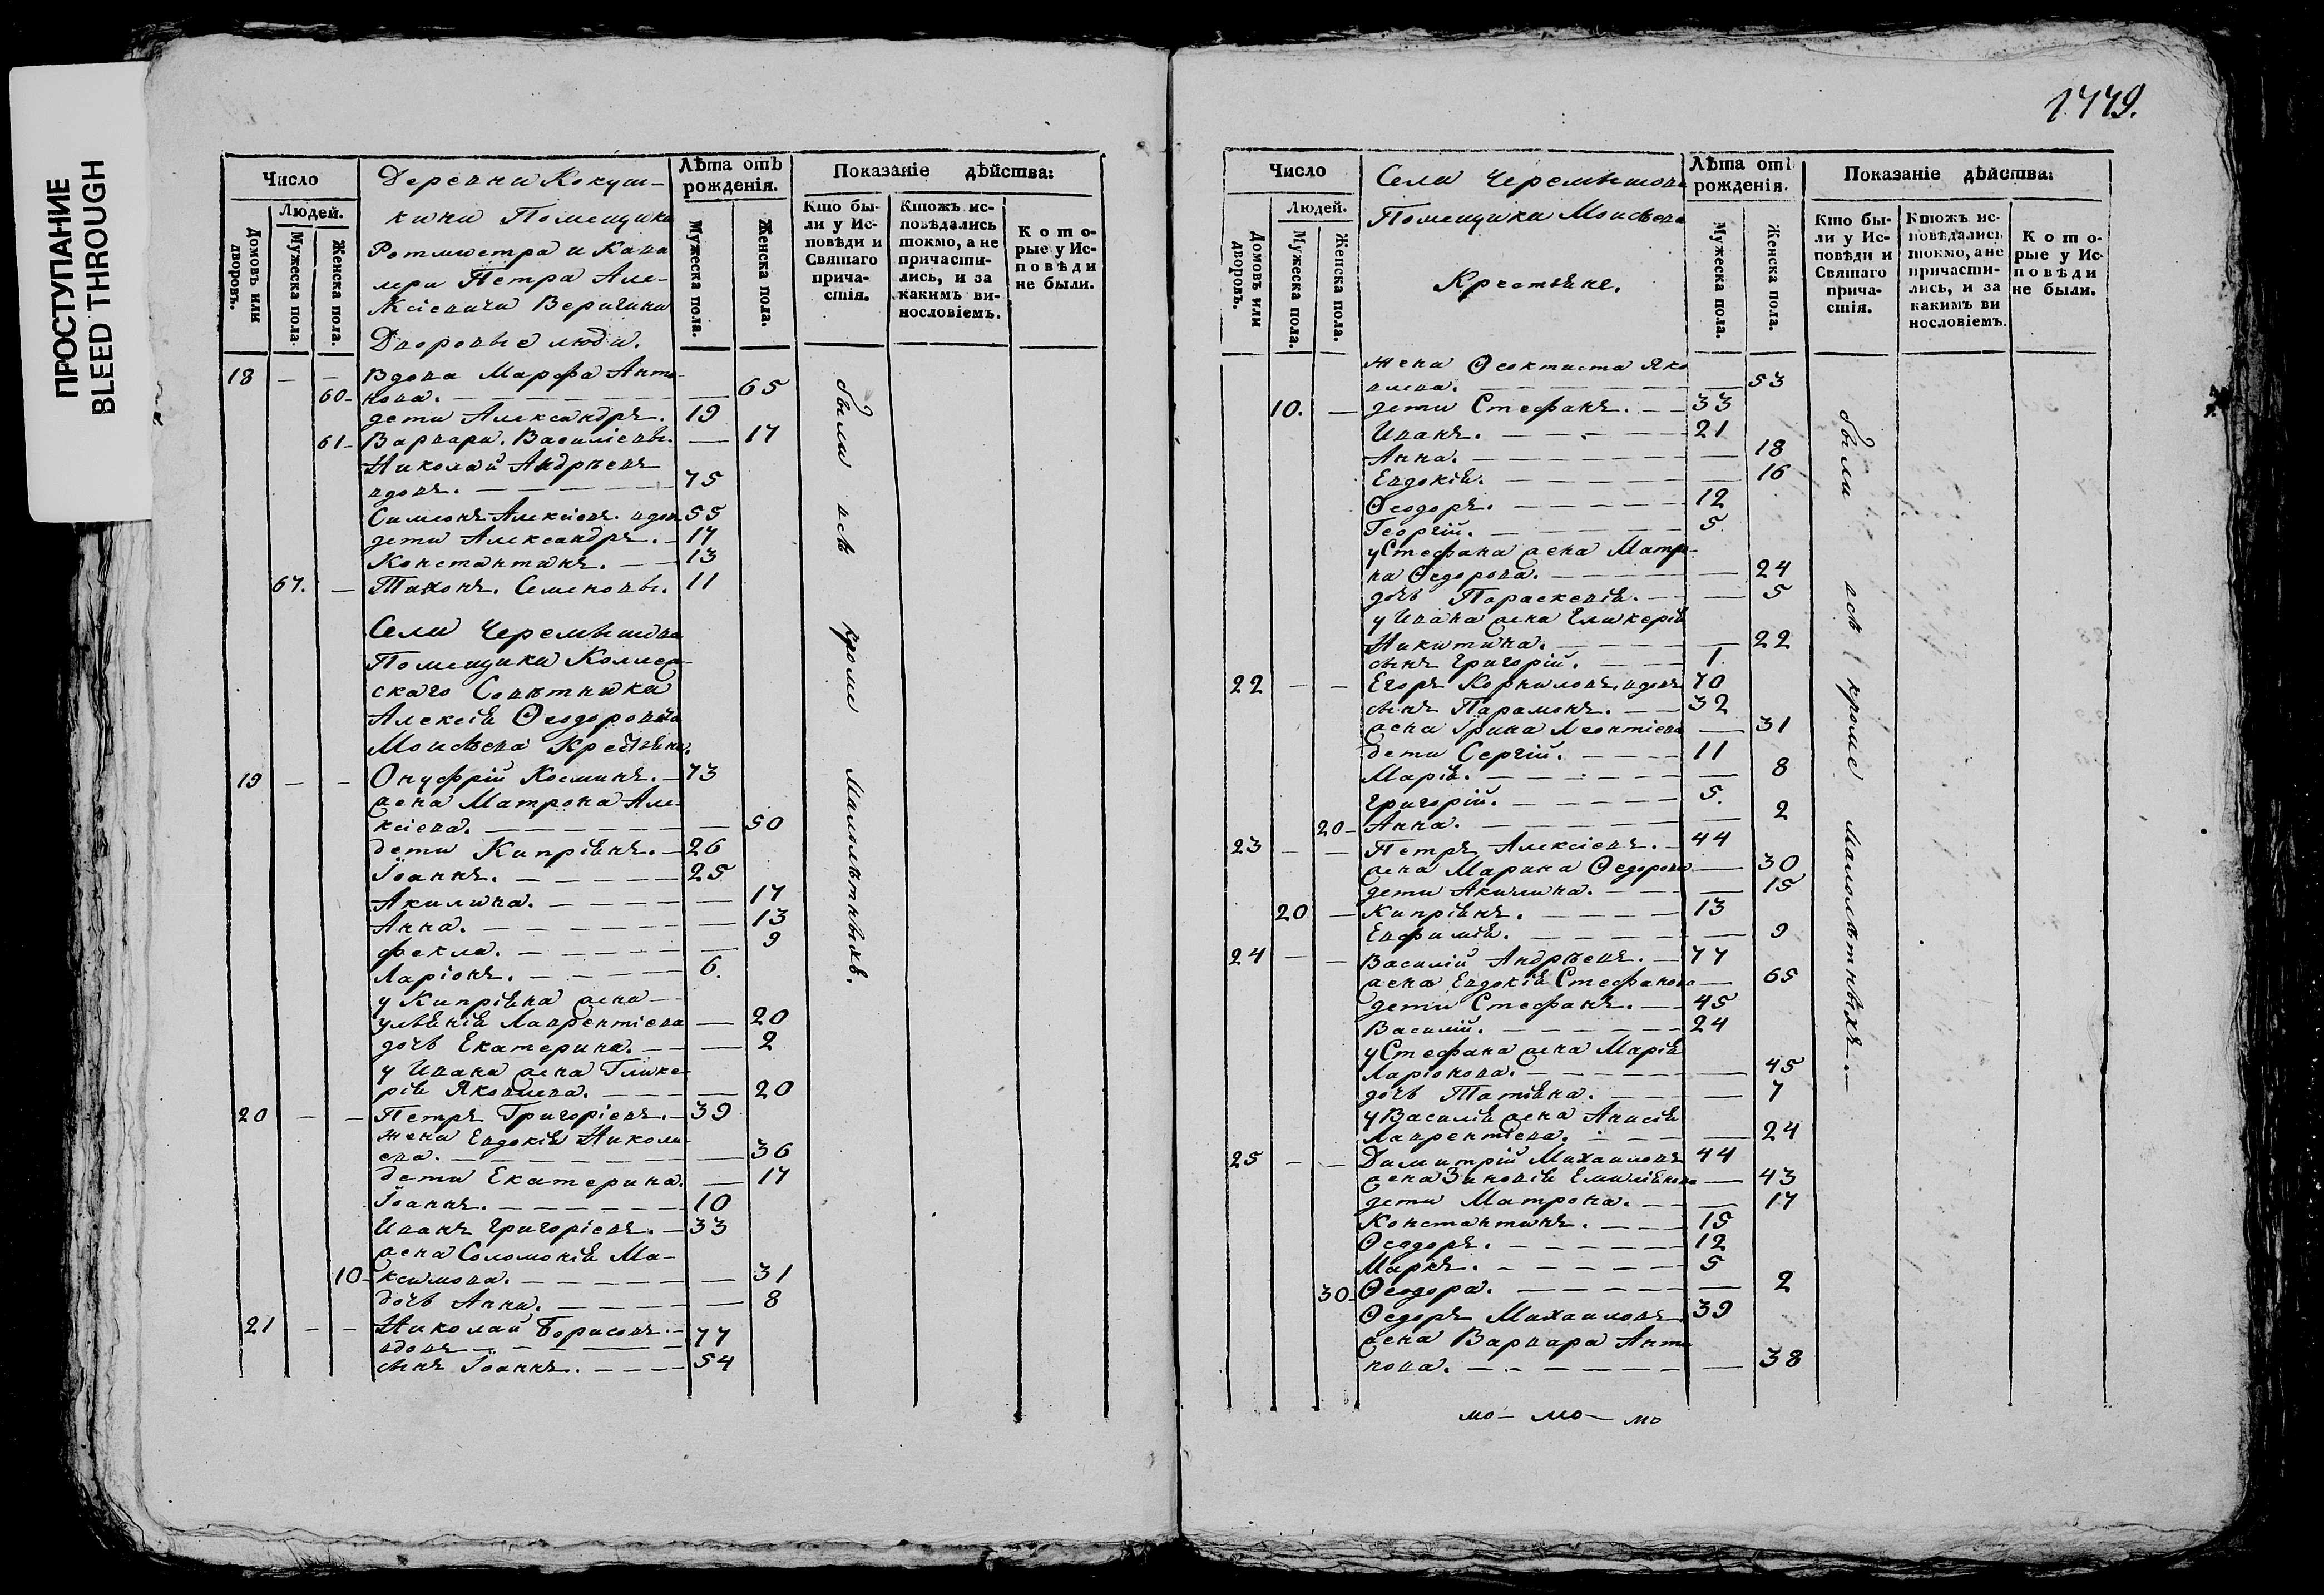 ПРОСТУПАНИЕ
BLEED THROUGH
Число
Людей.
Домовъ или дворовъ.
Мужеска пола.
Женска пола.
Деревни Кокуш-
кини Помещика
Ротмистра и Кава
лера Петра Але-
ксіевича Веригина
Дворовые люди.
Лѣта отъ рожденія.
Мужеска пола.
Женска пола.
Показаніе дѣйства:
Кто бы-
ли у Ис-
повѣди и
Святаго
прича-
стія.
Ктожъ ис-
повѣдались
токмо, а не
причасти-
лись, и за
какимъ ви-
нословіемъ.
Кото-
рые у Ис-
повѣди
не были.
18 — — Вдова Марфа Анто-
60 — нова. — 65
дети Александръ. 19
61 — Варвара. Василіевы. — 17
Николай Андрѣевъ
вдовъ. — 75
Симеонъ Алексіевъ. вдов 55
дети Александръ. — 17
Константинъ. — 13
67. — Тихонъ. Семеновы. 11
Села Черемышева
Помещика Коллеж-
скаго Совѣтника
Алексія Ѳеодоровича
Моисѣева Крестьяне.
19 — — Онуфрій Косминъ. — 73
жена Матрона Але-
ксіева. — 50
дети Кипріянъ. — 26
Іоаннъ. — 25
Акилина. — 17
Анна. — 13
Фекла. — 9
Ларіонъ. — 6.
у Кипріяна жена —
ульянія Лаврентіева — 20
дочь Екатерина. — 2
у Ивана жена Глике-
рія Яковлева. — 20
20 — — Петръ Григоріевъ. — 39
жена Евдокія Никола-
ева. — 36
дети Екатерина. — 17
Іоаннъ. — 10
Иванъ Григоріевъ. — 33
жена Соломонія Ма-
10 — ксимова. — 31
дочь Анна. — 8
21 — — Николай Борисовъ. —
вдовъ — 77
сынъ Іоаннъ. — 54
были всѣ кроме малолѣтныхъ.
1779.
Число
Людей.
Домовъ или дворовъ.
Мужеска пола.
Женска пола.
Села Черемышева
Помещика Моисѣева
Крестьяне.
Лѣта отъ рожденія.
Мужеска пола.
Женска пола.
Показаніе дѣйства:
Кто бы-
ли у Ис-
повѣди и
Святаго
прича-
стія.
Ктожъ ис-
повѣдались
токмо, а не
причасти-
лись, и за
какимъ ви
нословіемъ.
Кото-
рые у Ис-
повѣди
не были.
жена Ѳеоктиста Яко
влева. — 53
10. — дети Стефанъ. — 33
Иванъ. — 21
Анна. — 18
Евдокія. — 16
Ѳеодоръ. — 12
Георгій. — 5
у Стефана жена Матро-
на Ѳедорова. — 24
дочь Параскевія. — 5
у Ивана жена Гликерія
Никитина. — 22
сынъ Григорій. — 1.
22 — — Егоръ Корниловъ. вдовъ 70
сынъ Парамонъ. — 32
жена Ірина Леонтіева — 31
дети Сергій. — 11
Марія. — 8
Григорій. — 5.
20 — Анна. — 2
23 — — Петръ Алексіевъ. — 44
жена Марина Ѳедорова — 30
дети Акилина. — 15
20 — Кипріянъ. — 13
Евфимія. — 9
24 — — Василій Андрѣевъ. — 77
жена Евдокія Стефанова — 65
дети Стефанъ. — 45
Василій. — 24
у Стефана жена Марія
Ларіонова. — 45
дочь Татіяна. — 7
у Василія жена Анисія
Лаврентіева. — 24
25 — — Димитрій Михаиловъ 44
жена Зиновія Емиліянова — 43
дети Матрона. — 17
Константинъ. — 15
Ѳеодоръ. — 12
Маркъ. — 5
30 — Ѳеодора. — 2
Ѳедоръ Михаиловъ 39
жена Варвара Анто
нова. — 38
были всѣ кроме малолѣтныхъ. —
мо — мо — мо